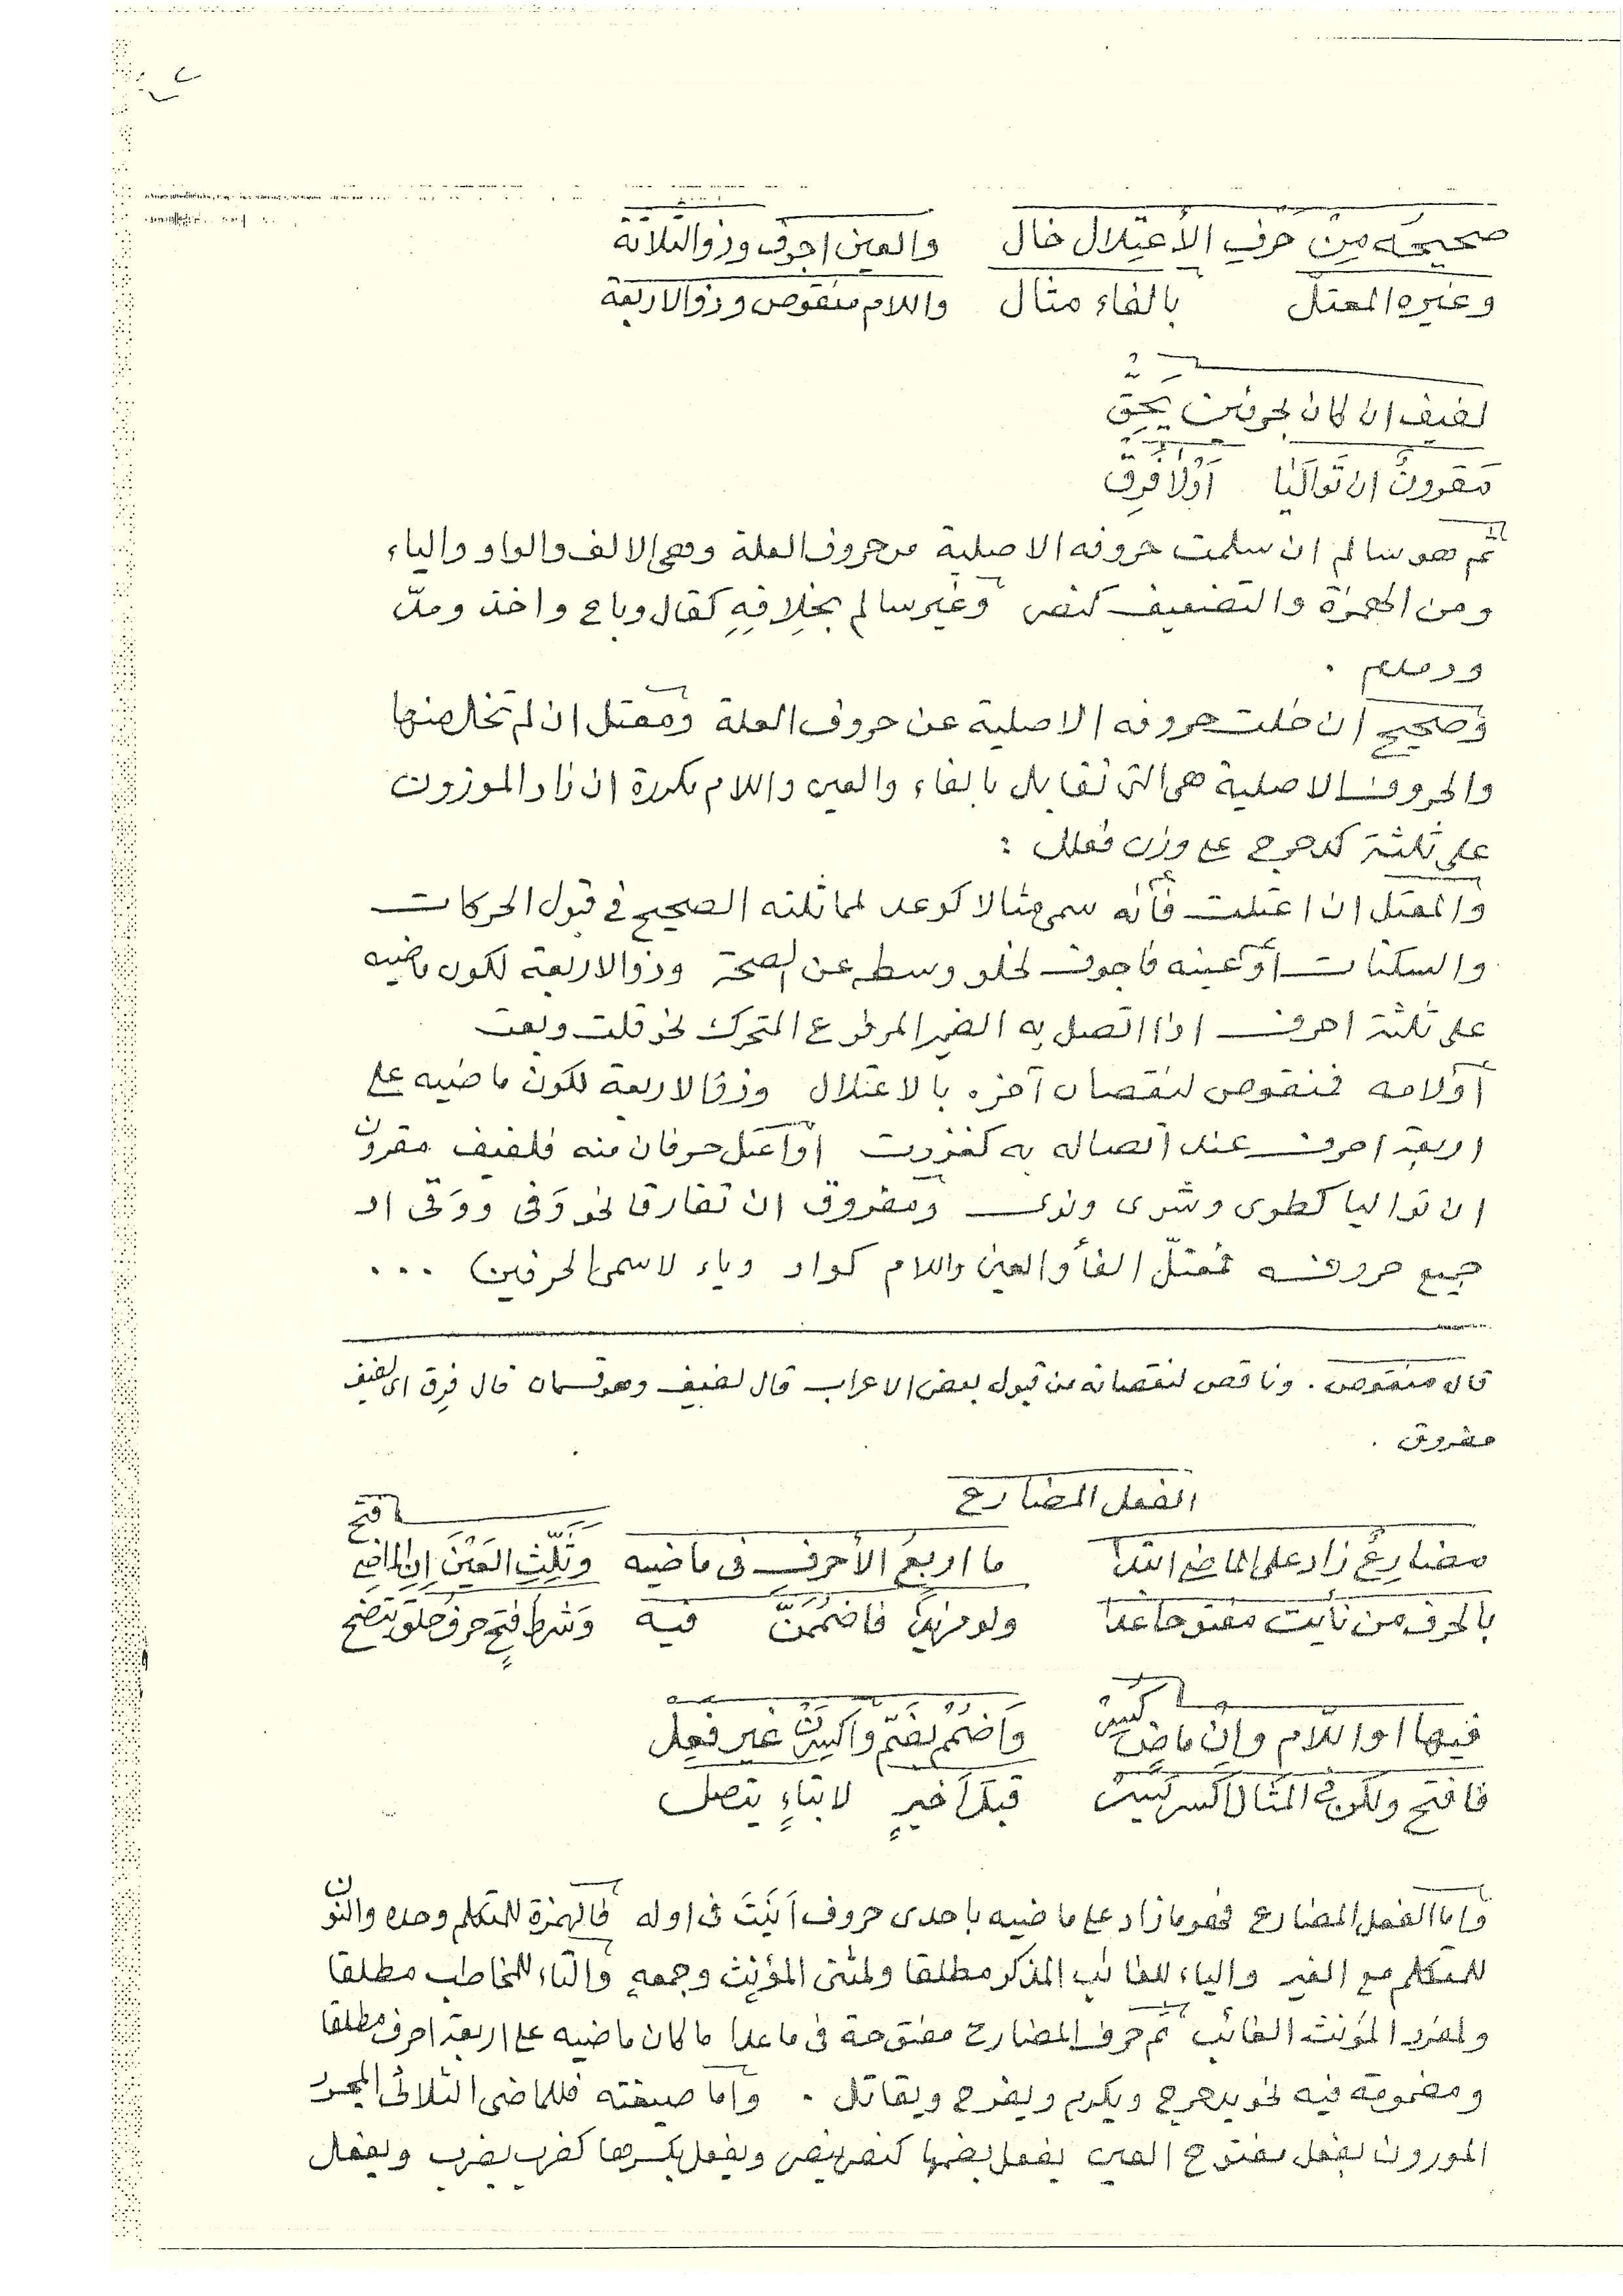 صحيحُه مِنْ حَرْفِ الأعْتِلال خال والعين اجوف وذو الثلاثة
وغيره المعتلّ بالفاء مثال واللام منقوص وذو الاربعة
لفيف ان كان بحرفين يَحِقّ
مقرونٌ ان تَوالَيَا اَوْلا فُرِق
ثم هو سالم ان سلمت حروفه الاصلية من حروف العلة وهى الالف والواو والياء
ومن الهمزة والتضعيف كنصر وغير سالم بخِلافِهِ كقال وباع واخذ ومدّ
وصحيح ان خلت حروفه الاصلية عن حروف العلة ومعتل ان لم تخل منها
والحروف الاصلية هى التى تقابل بالفاء والعين واللام مكررة ان زاد الموزون
على ثلثة كدحرج على وزن فعلل :
والمعتل ان اعتلت فأئه سمى مثالا كوعد لمماثلته الصحيح فى قبول الحركات
والسكنات أوعينه فاجوف لخلو وسطه عن الصحة وذو الاربعة لكون ماضيه
على ثلثة احرف اذا اتصل به الضمير المرفوع المتحرك نحو قلت وبعت
أولامه فمنقوص لنقصان آخره بالاعتلال وذو الاربعة لكون ماضيه على
اربعة احرف عند اتصاله به كغزوت أواعتل حرفان منه فلفيف مقرون
ان تواليا كطوى وشوى ونوى ومفروق ان تفارقا نحو وَفى ووَقى او
جميع حروفه فمعتلّ الفأ والعين واللام كواو وياء لاسمى الحرفين ...
قال منقوص . وناقص لنقصانه من قبول بعض الاعراب قال لفيف وهو قسمان قال فُرِق اى لفيف
مفروق .
الفعل المضارع
مضارعٌ زاد على الماضى ابتدا ما اربعُ الأحرفِ فى ماضيه وثَلِّثِ العَيْنَ اِنِ الماضى فتح
بالحرف من نأيت مفتوحا غدا ولو مزيدًا فاضمُمَنَّ فيه وَشرط فتحٍ حرفُ حلقٍ يتضح
فيها او اللام وإن ماضٍ كُسِرْ وَاضمُمْ لضَمّ واكسِرَنْ غير فَعِل
فافتح ولكن فى المثال اكسر كَيَسِرْ قبلَ اَخيرٍ لا بتاءٍ يتصل
وأما الفعل المضارع فهو ما زاد على ماضيه باحدى حروف اَنَيْتَ فى اوله فالهمزة للمتكلم وحده والنون
للمتكلم مع الغير والياء للغائب المذكر مطلقا ولمثنى المؤنث وجمعه والتاء للمخاطب مطلقا
ولمفرد المؤنث الغائب ثم حرف المضارع مفتوحة فى ما عدا ما كان ماضيه على اربعة احرف مطلقا
ومضمومة فيه نحو يدحرج ويكرم ويفرح ويقاتل . وأما صيغته فللماضى الثلاثى المجرد
الموزون بفعل مفتوح العين يفعل بضمها كنصر ينصر ويفعل بكسرها كضرب يضرب ويفعل